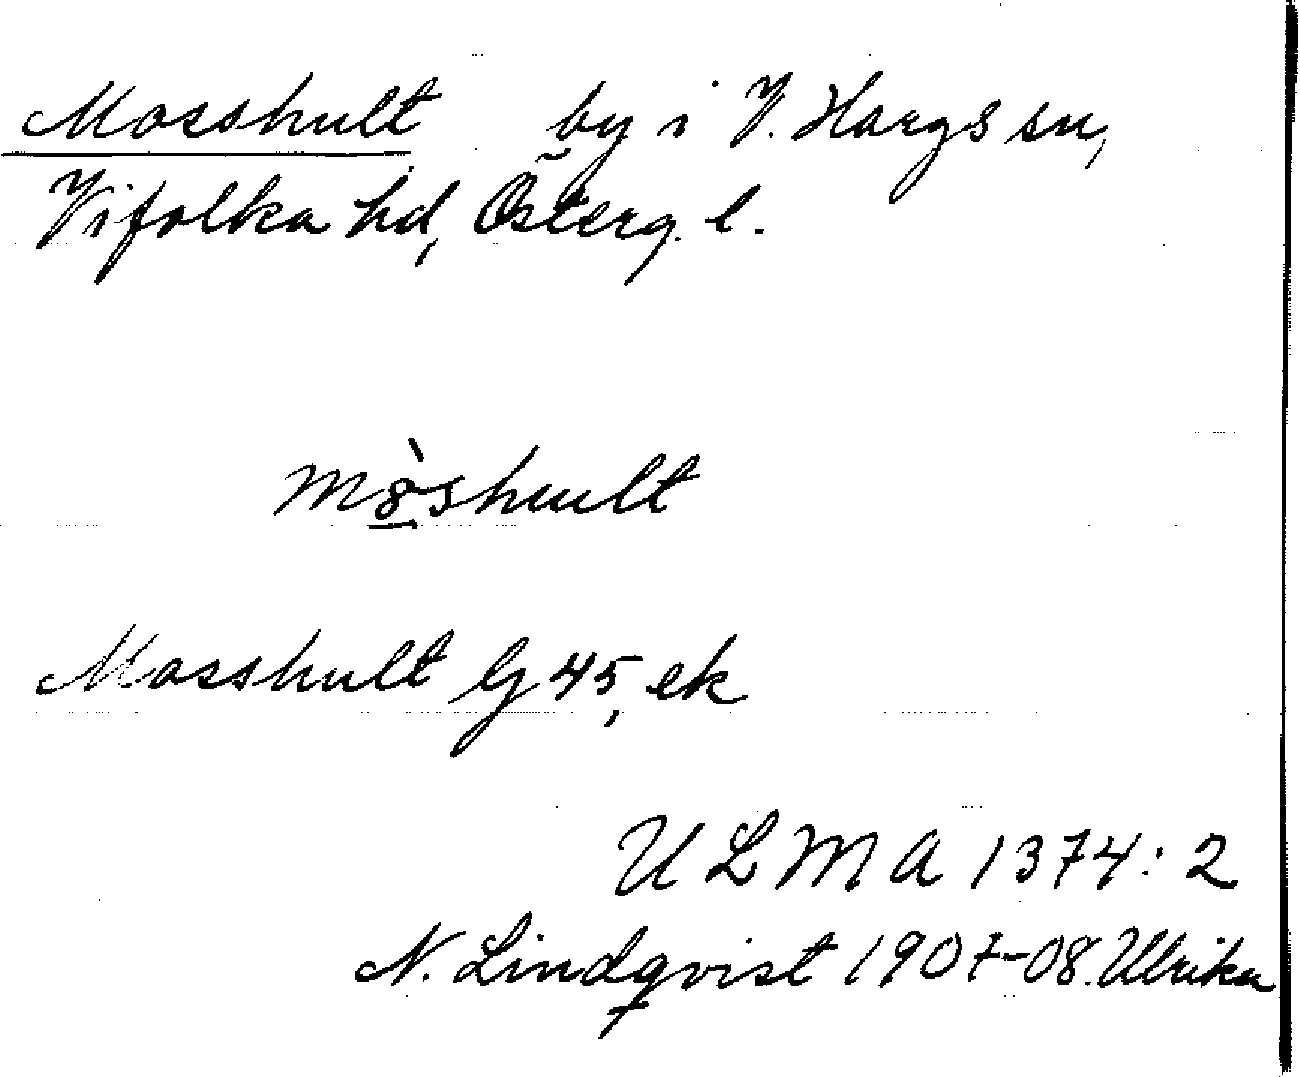 Mosshult by i V. Hargs sn,
Vifolka hd, Österg. l.
Mosshult G 45, ek
ULMA 1374:2
N. Lindqvist 1907-08. Ulrika